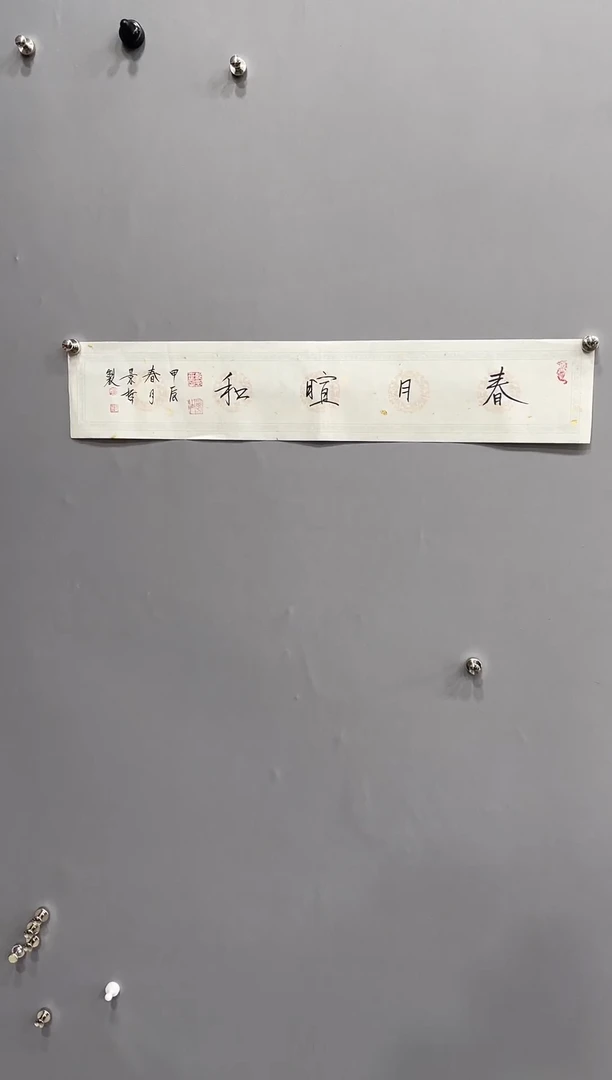 春月暄和
甲辰
春月
景哲
製